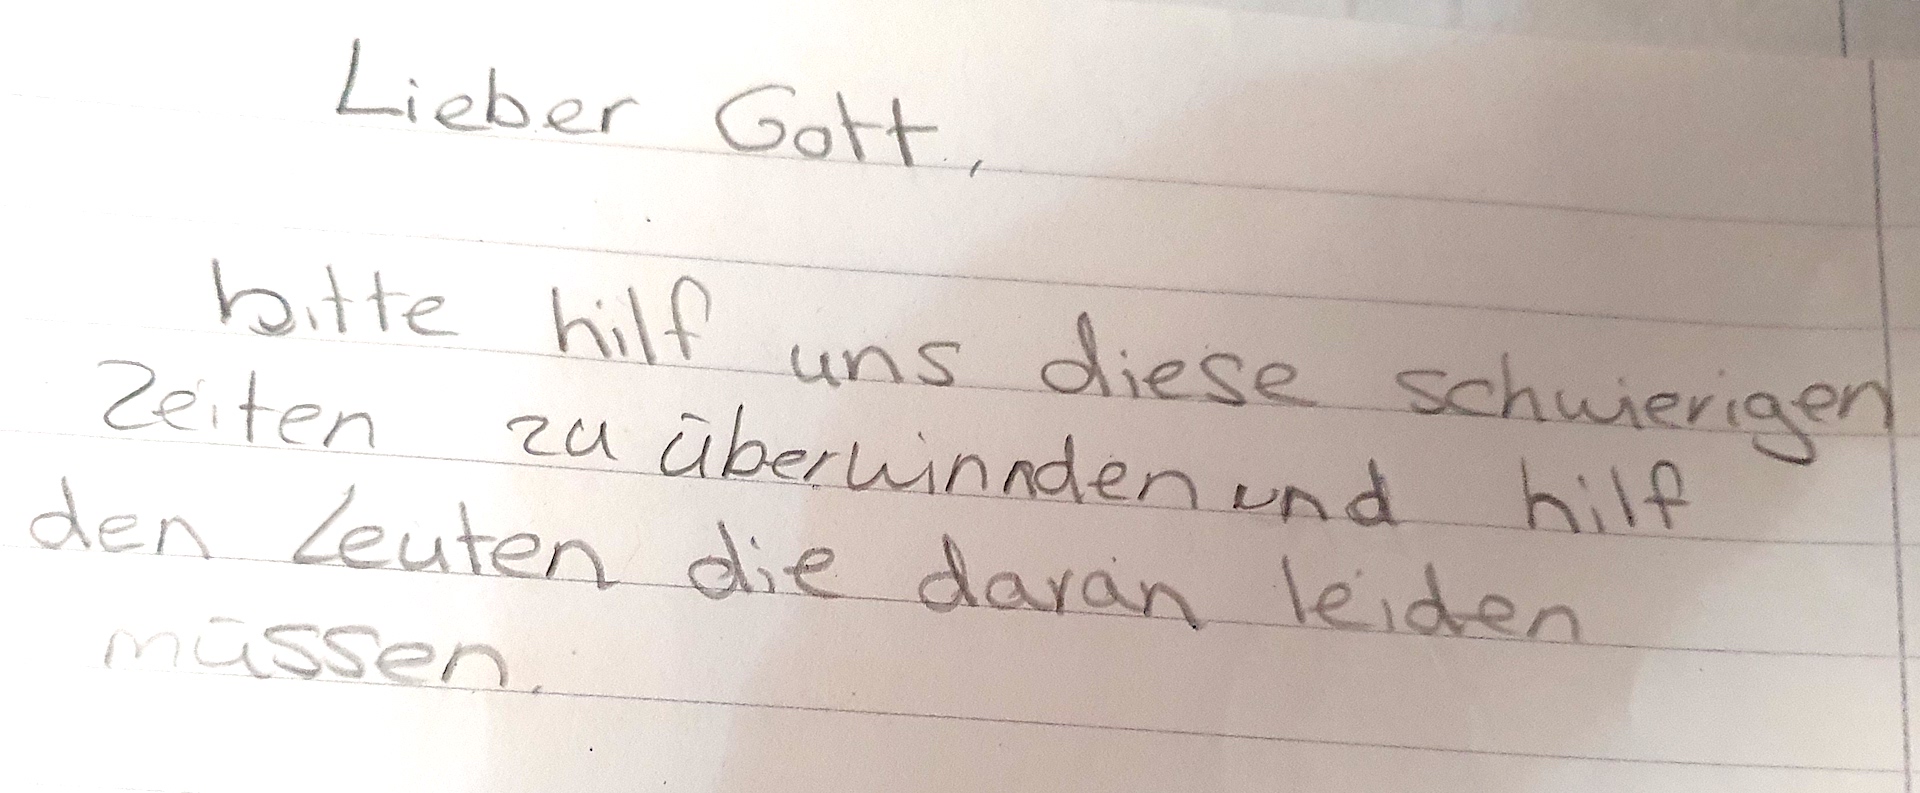 Lieber Gott,
bitte hilf uns diese schwierigen
Zeiten zu überwinnden und hilf
den Leuten die daran leiden
müssen.